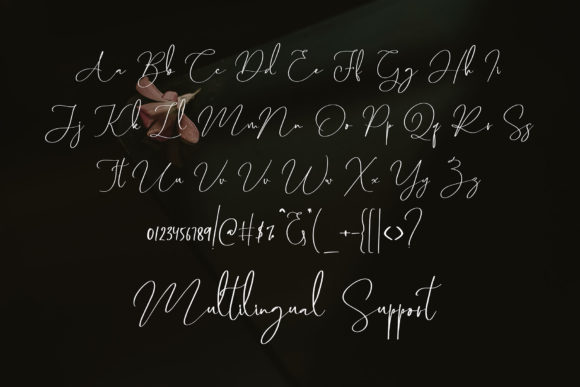 Aa Bb Cc Dd Ee Ff Gg Hh Ii
Jj Kk Ll Mm Nn Oo Pp Qq Rr Ss
Tt Uu Vv Vv Ww Xx Yy Zz
0123456789!@#$%^&*(_+-{[|<>?
Multilingual Support